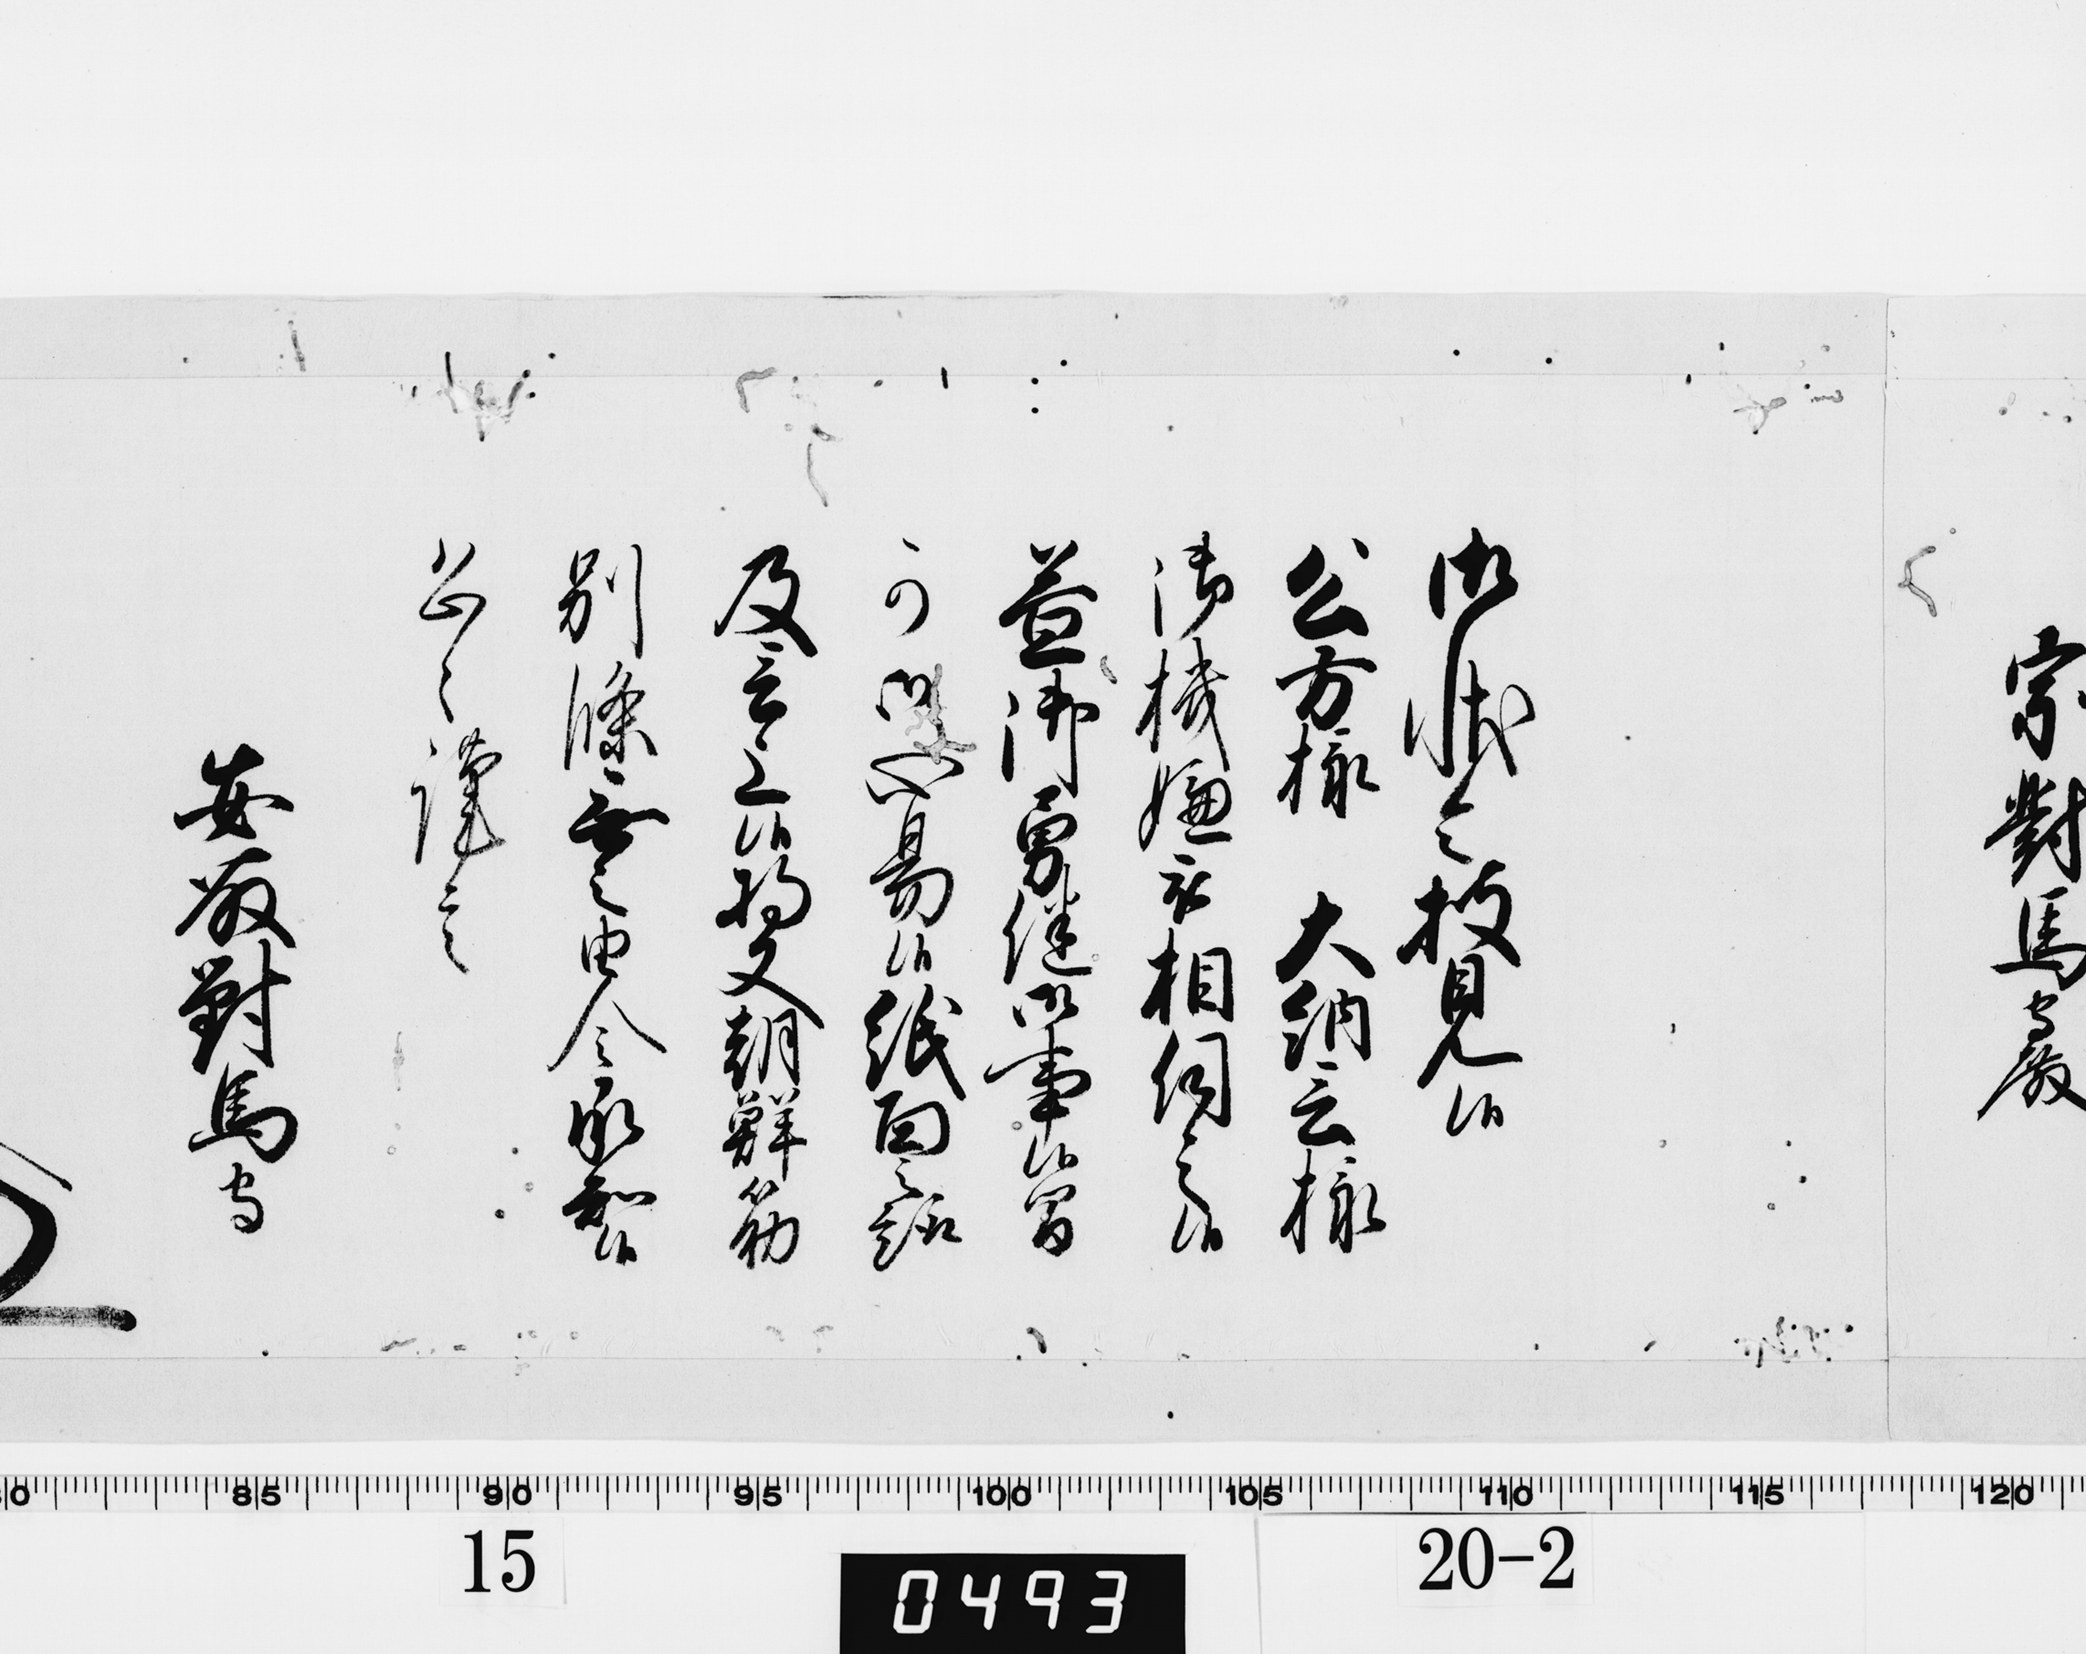 宗對馬守殿
御状令披見候
公方様　大納言様
御機嫌被相伺之候
益御勇健御事候間
可御心易候紙面之趣
及言上候将又朝鮮筋
別條無之由令承知候
恐々謹言
安藤對馬守
80 85 90 95 100 105 110 115 120
15
20-2
0493